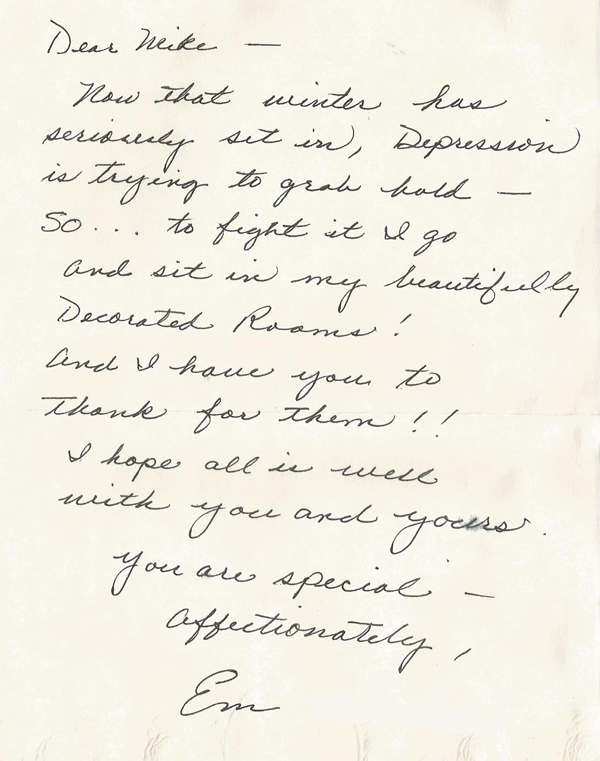 Dear Mike —
Now that winter has
seriously set in, Depression
is trying to grab hold —
So... to fight it I go
and sit in my beautifully
Decorated Rooms!
And I have you to
thank for them!!
I hope all is well
with you and yours.
You are special —
Affectionately,
Em